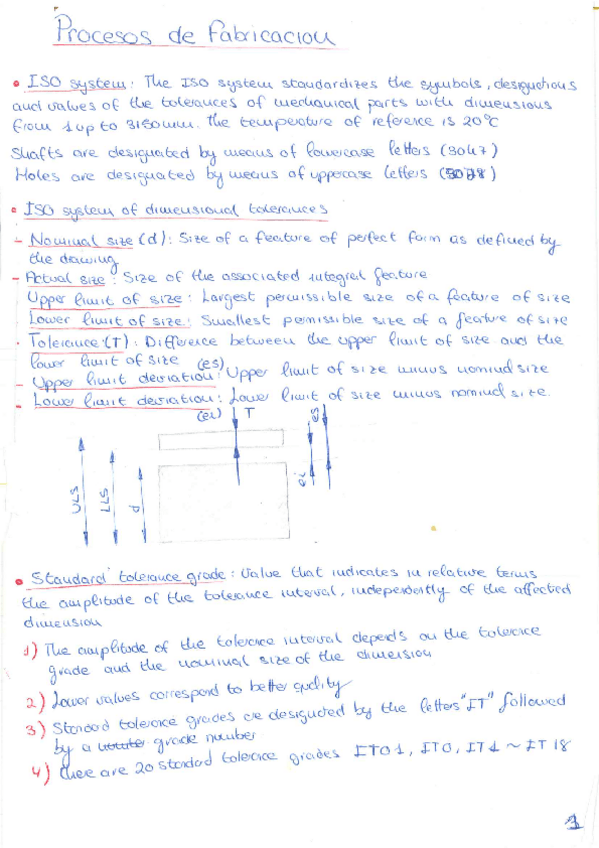 Procesos de Fabricacion
• ISO system: The ISO system standardizes the symbols, designations
and values of the tolerances of mechanical parts with dimensions
from 1 up to 3150mm. The temperature of reference is 20ºC
Shafts are designated by means of lowercase letters (30h7)
Holes are designated by means of uppercase letters (30J8)
• ISO system of dimensional tolerances
- Nominal size (d): Size of a feature of perfect form as defined by
the drawing
- Actual size: Size of the associated integral feature
Upper limit of size: Largest permissible size of a feature of size
Lower limit of size: Smallest permissible size of a feature of size
· Tolerance (T): Difference between the upper limit of size and the
lower limit of size
- Upper limit deviation (es): Upper limit of size minus nominal size
- Lower limit deviation: Lower limit of size minus nominal size.
(ei) T es
ULS LLS d ei
• Standard tolerance grade: Value that indicates in relative terms
the amplitude of the tolerance interval, independently of the affected
dimension
1) The amplitude of the tolerance interval depends on the tolerance
grade and the nominal size of the dimension
2) Lower values correspond to better quality
3) Standard tolerance grades are designated by the letters "IT" followed
by a grade number
4) There are 20 standard tolerance grades IT01, IT0, IT1 ~ IT18
1